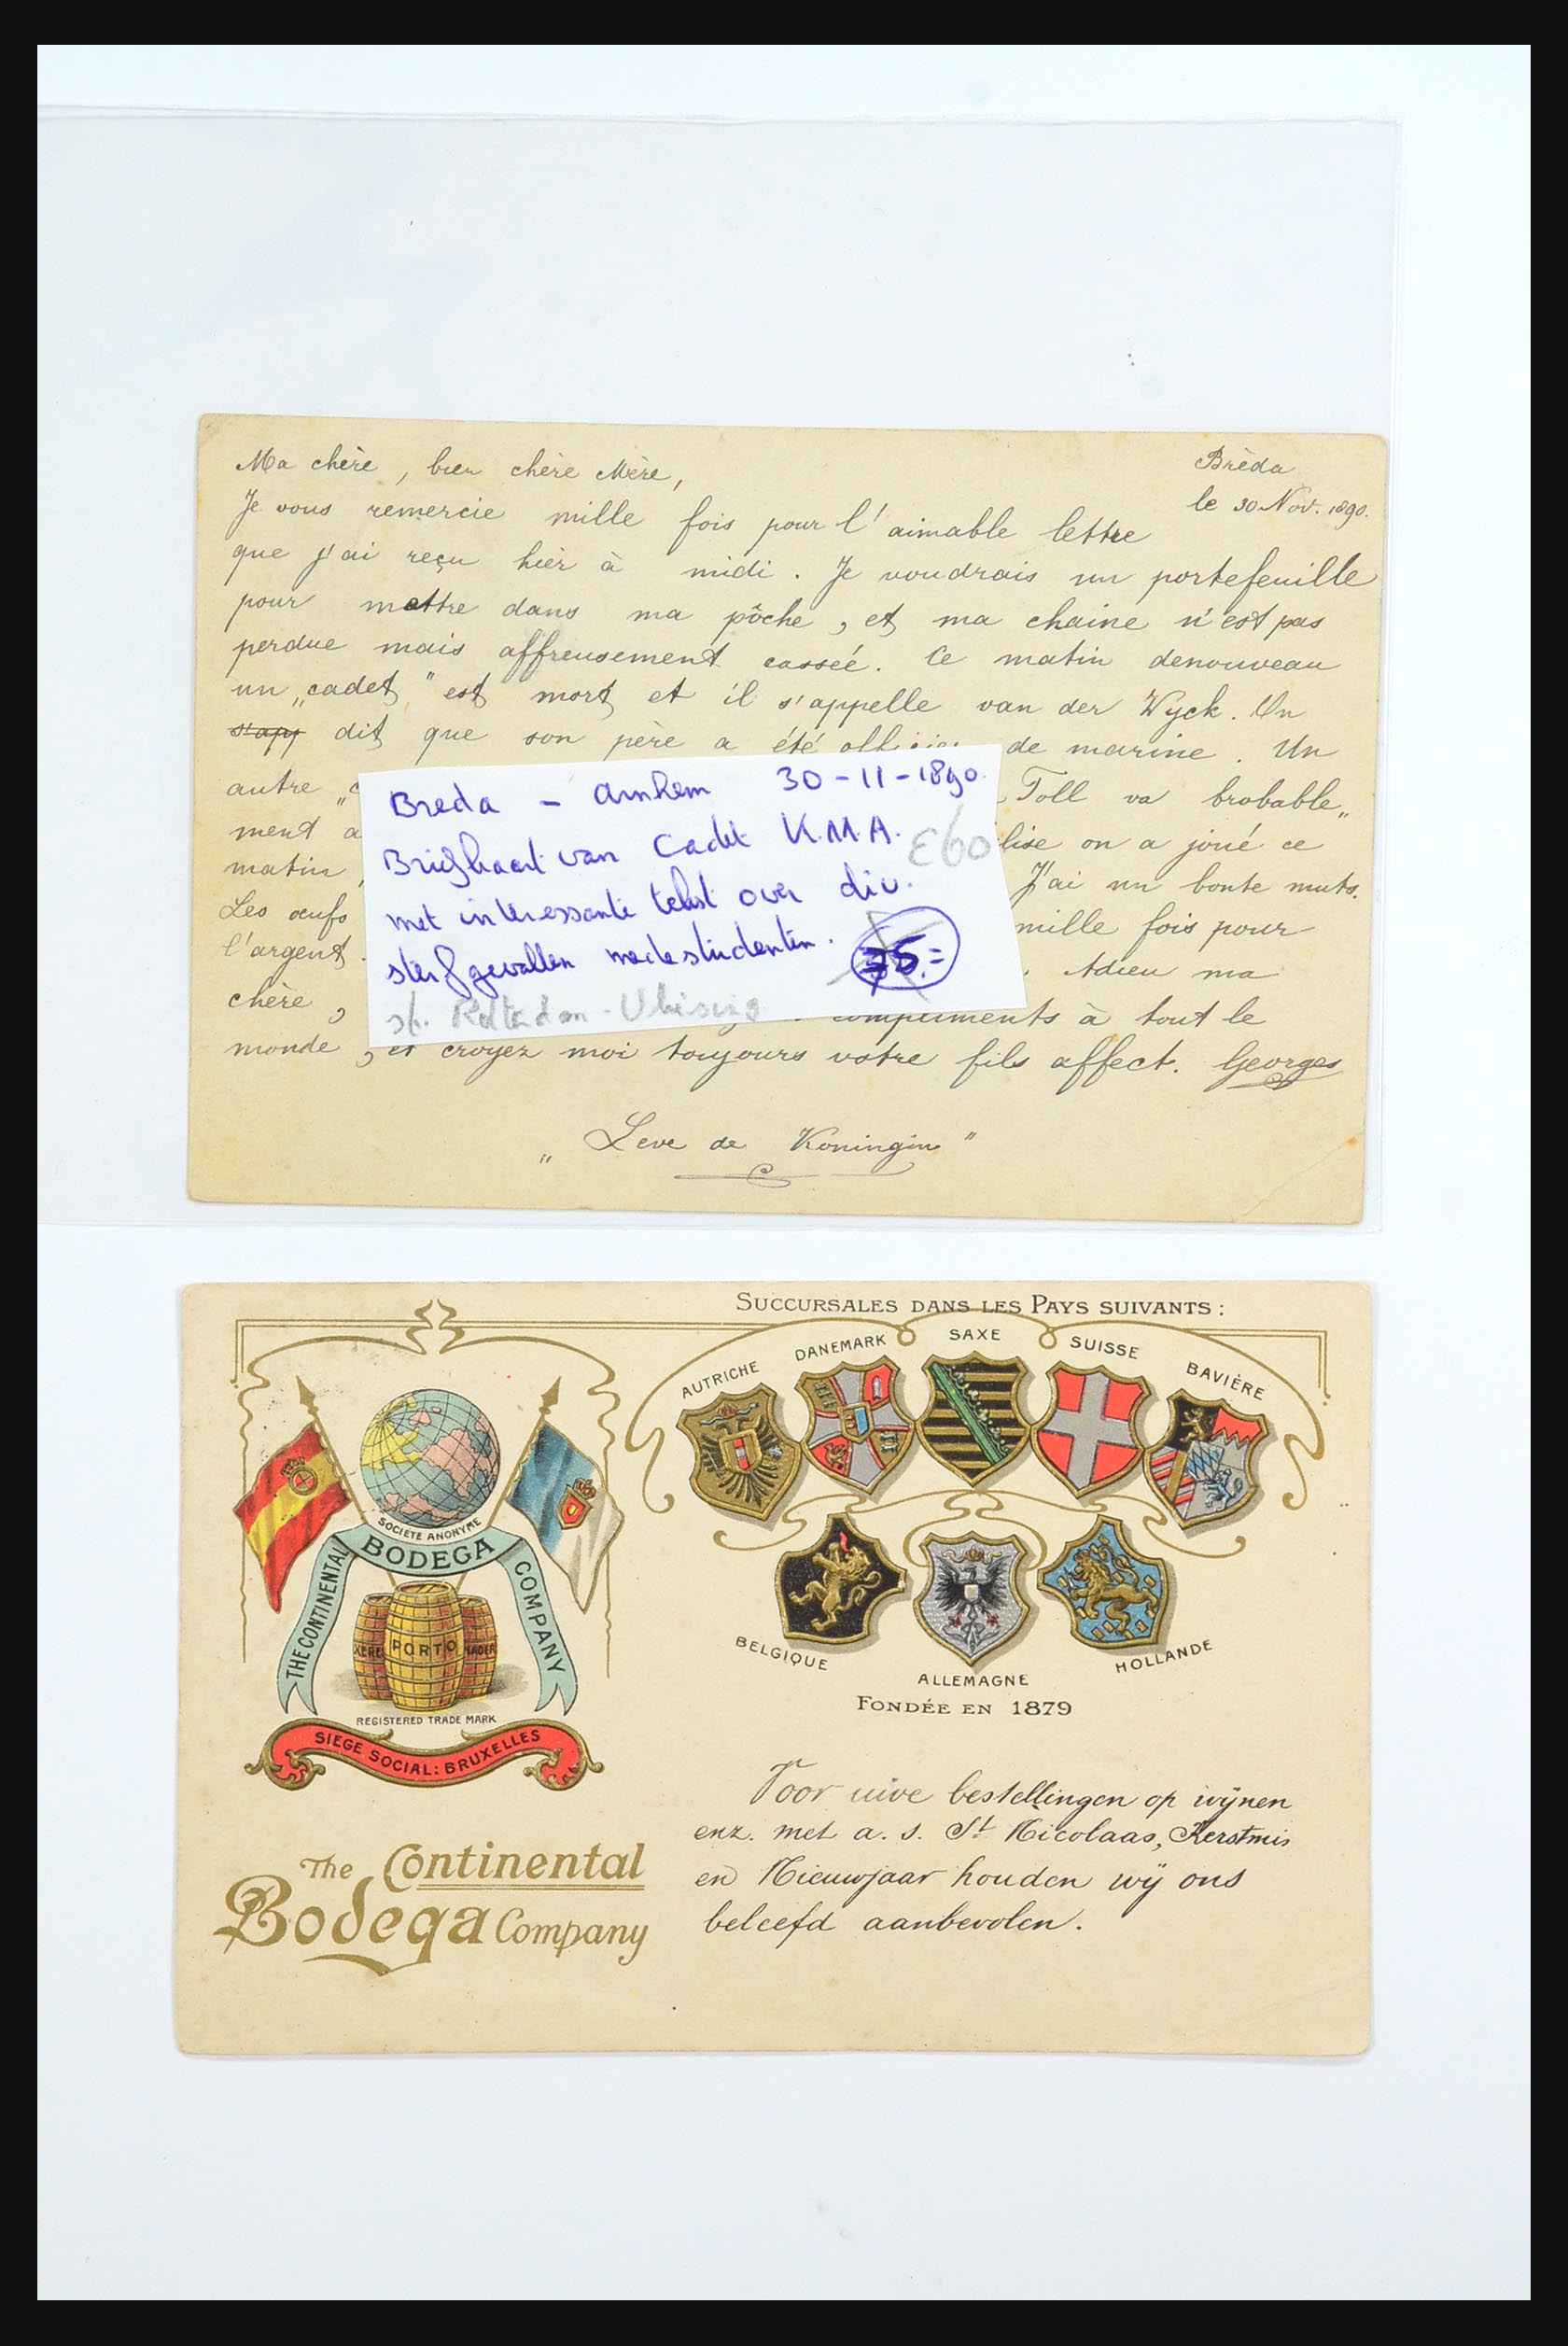 Ma chère, bien chère Mère,
Brèda
le 30 Nov. 1890.
Je vous remercie mille fois pour l'aimable lettre
que j'ai reçu hièr à midi. Je voudrais un portefeuille
pour mettre dans ma pôche, et ma chaine n'est pas
perdue mais affreusement casseé. Ce matin denouveau
un „cadet" est mort et il s'appelle van der Wyck. On
s'app dit que son père a été officier de marine. Un
autre „c Toll va brobable„
ment a lise on a joué ce
matin, J'ai un bonte muts.
Les œufs mille fois pour
l'argent. Adieu ma
chère, compliments à tout le
monde, et croyez moi toujours votre fils affect. Georges
„Leve de Koningin"
Breda - Arnhem 30-11-1890.
Briefkaart van Cadet K.M.A.
£60
met interessante tekst over div.
sterfgevallen medestudenten. 75.=
st. Rotterdam - Vlissing
SUCCURSALES DANS LES PAYS SUIVANTS :
AUTRICHE DANEMARK SAXE SUISSE BAVIÈRE
BELGIQUE ALLEMAGNE HOLLANDE
FONDÉE EN 1879
SOCIÉTÉ ANONYME
THE CONTINENTAL BODEGA COMPANY
XERE PORTO MADER
REGISTERED TRADE MARK
SIEGE SOCIAL: BRUXELLES
The Continental
Bodega Company
Voor uwe bestellingen op wijnen
enz. met a. s. St Nicolaas, Kerstmis
en Nieuwjaar houden wij ons
beleefd aanbevolen.